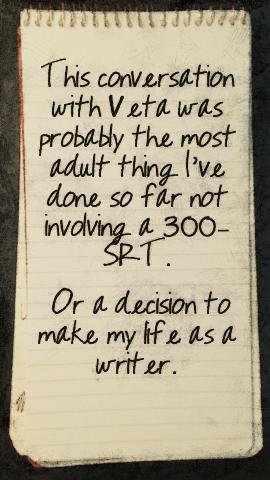 This conversation
with Veta was
probably the most
adult thing I've
done so far not
involving a 300-
SRT.
Or a decision to
make my life as a
writer.